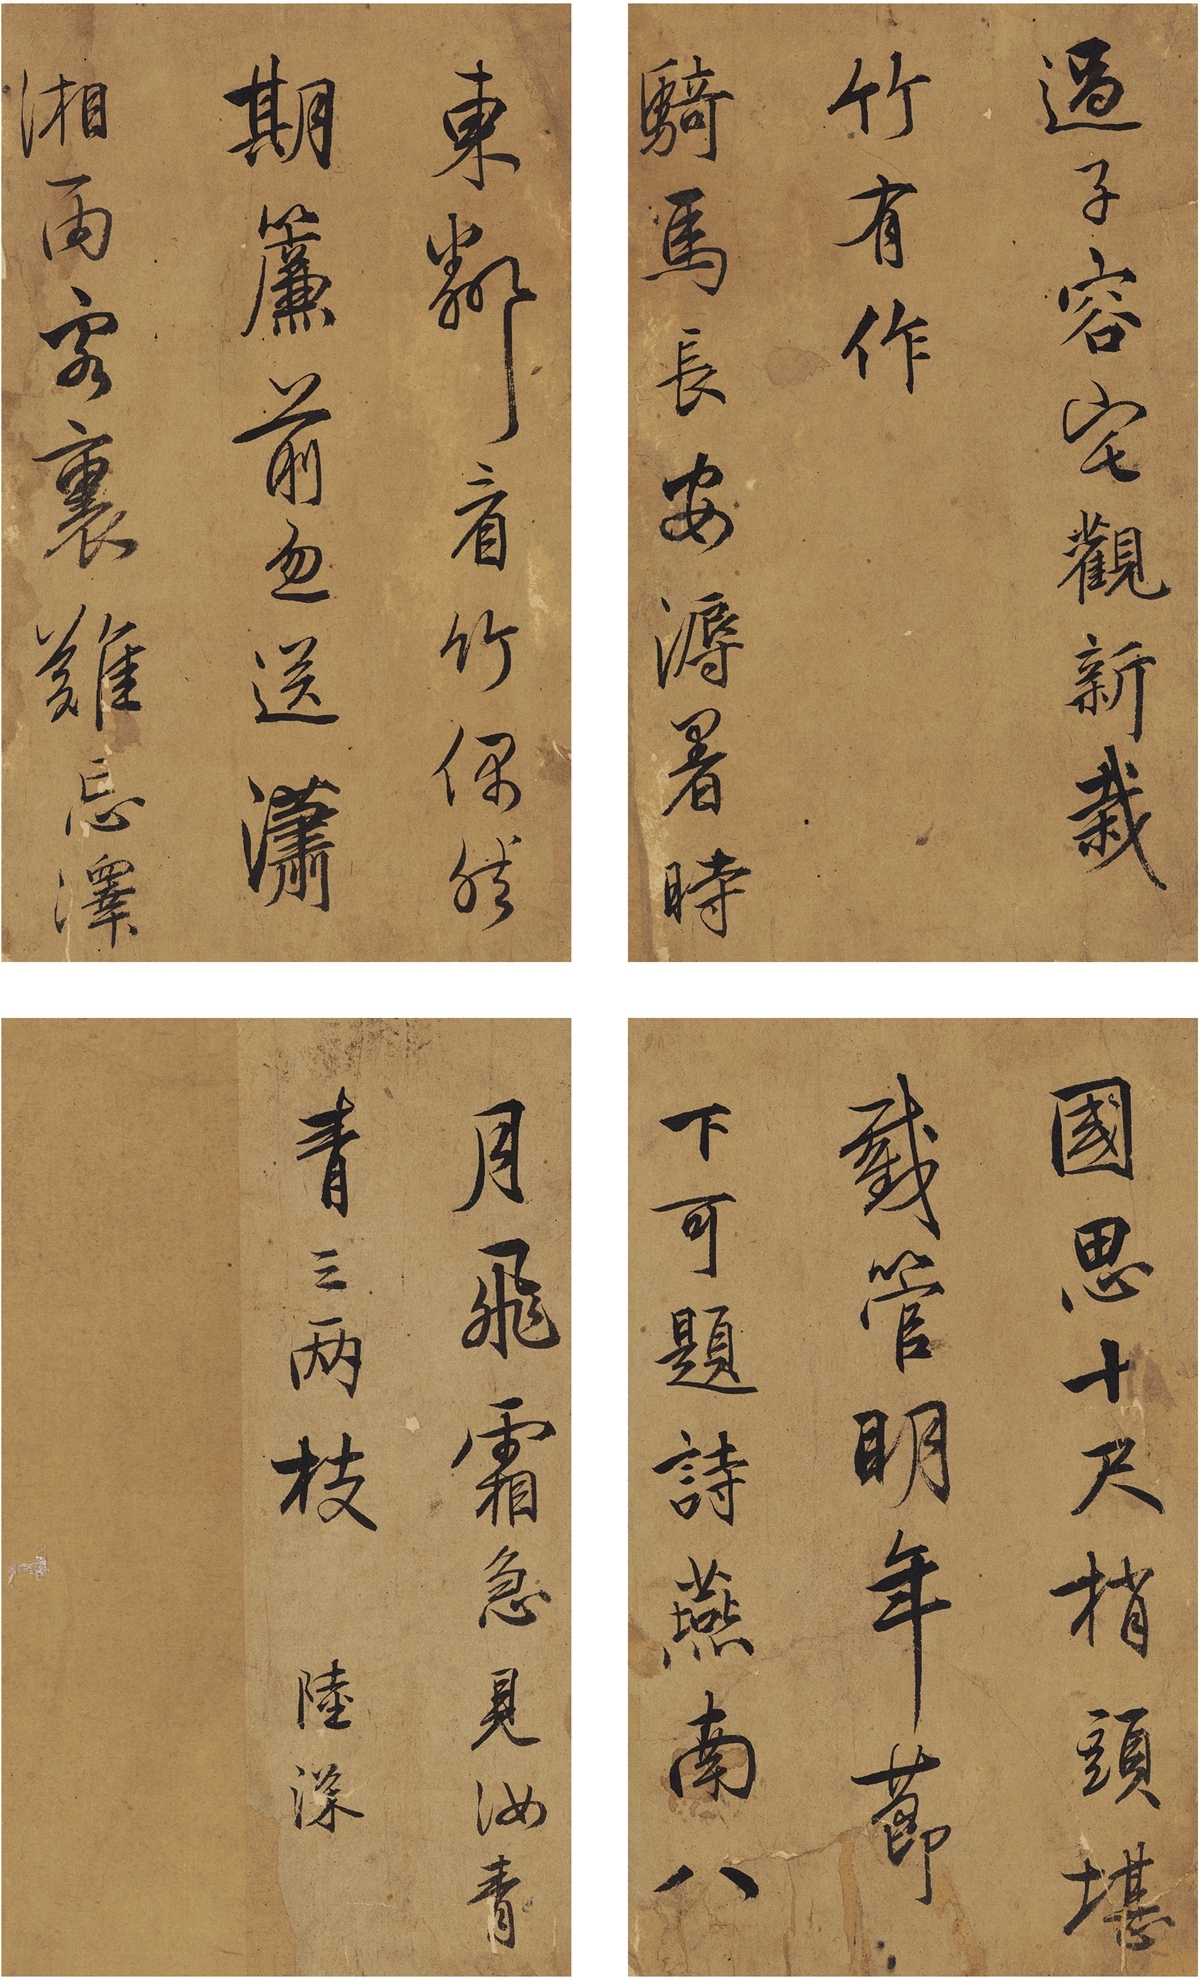 過子容宅觀新栽
竹有作
騎馬長安溽暑時
東鄰看竹偶然
期簾前忽送瀟
湘雨客裏難忘澤
國思十尺梢頭堪
截管明年節
下可題詩燕南八
月飛霜急見汝青
青三两枝
陸深